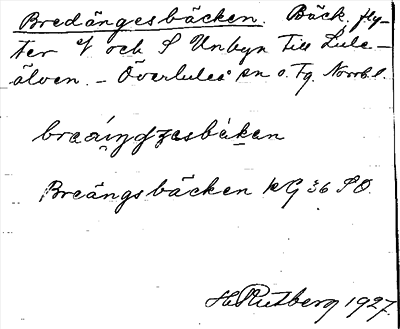 Bredängesbäcken. Bäck, fly-
ter V och S Unbyn till Lule-
älven. - Överluleå sn o. Tg. Norrb. l.
Breängsbäcken KG 36 SO.
H. Rutberg 1927.